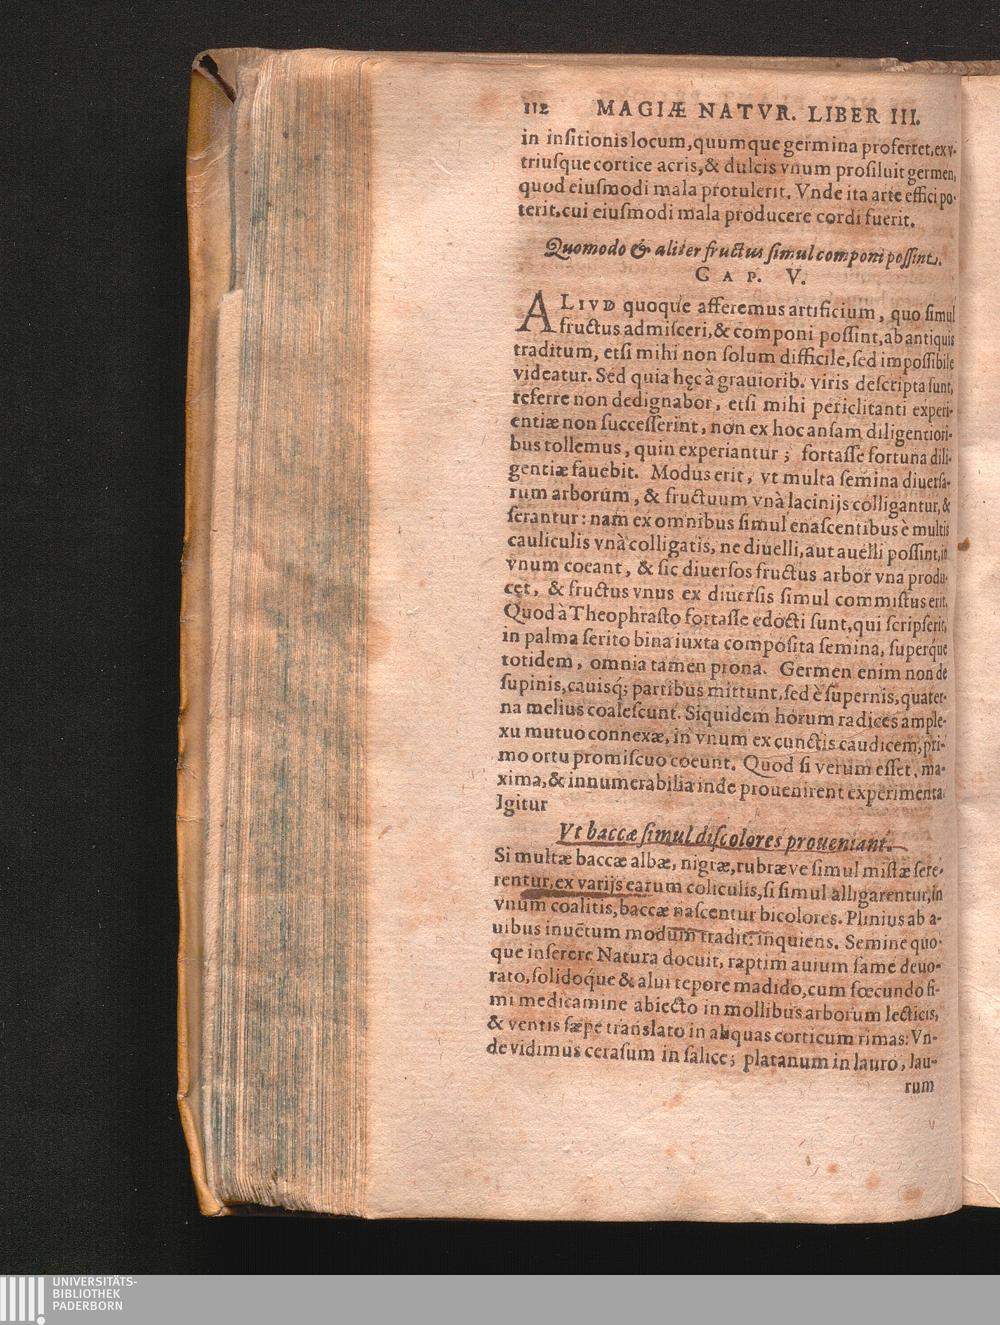 112 MAGIÆ NATVR. LIBER III.
in inſitionis locum, quumque germina proferret, ex v-
triuſque cortice acris, & dulcis vnum proſiluit germen,
quod eiuſmodi mala protulerit. Vnde ita arte effici po-
terit, cui eiuſmodi mala producere cordi fuerit.
Quomodo & aliter fructus ſimul componi poſſint.
CAP. V.
ALIVD quoque afferemus artificium, quo ſimul
fructus admiſceri, & componi poſſint, ab antiquis
traditum, etſi mihi non ſolum difficile, ſed impoſſibile
videatur. Sed quia hęc à grauiorib. viris deſcripta ſunt,
referre non dedignabor, etſi mihi periclitanti experi-
entiæ non ſucceſſerint, non ex hoc anſam diligentiori-
bus tollemus, quin experiantur; fortaſſe fortuna dili-
gentiæ fauebit. Modus erit, vt multa ſemina diuerſa-
rum arborum, & fructuum vnà lacinijs colligantur, &
ſerantur: nam ex omnibus ſimul enaſcentibus è multis
cauliculis vnà colligatis, ne diuelli, aut auelli poſſint, in
vnum coeant, & ſic diuerſos fructus arbor vna produ-
cet, & fructus vnus ex diuerſis ſimul commiſtus erit.
Quod à Theophraſto fortaſſe edocti ſunt, qui ſcripſerit,
in palma ſerito bina iuxta compoſita ſemina, ſuperque
totidem, omnia tamen prona. Germen enim non de
ſupinis, cauisq; partibus mittunt, ſed è ſupernis, quater-
na melius coaleſcunt. Siquidem horum radices ample-
xu mutuo connexæ, in vnum ex cunctis caudicem, pri-
mo ortu promiſcuo coeunt. Quod ſi verum eſſet, ma-
xima, & innumerabilia inde prouenirent experimenta.
Igitur
Vt baccæ ſimul diſcolores proueniant.
Si multæ baccæ albæ, nigræ, rubræve ſimul miſtæ ſere-
rentur, ex varijs earum coliculis, ſi ſimul alligarentur, in
vnum coalitis, baccæ naſcentur bicolores. Plinius ab a-
uibus inuẽtum modum tradit: inquiens. Semine quo-
que inſerere Natura docuit, raptim auium fame deuo-
rato, ſolidoque & alui tepore madido, cum fœcundo fi-
mi medicamine abiecto in mollibus arborum lecticis,
& ventis ſæpe translato in aliquas corticum rimas: Vn-
de vidimus ceraſum in ſalice; platanum in lauro, lau-
rum
UNIVERSITÄTS-
BIBLIOTHEK
PADERBORN